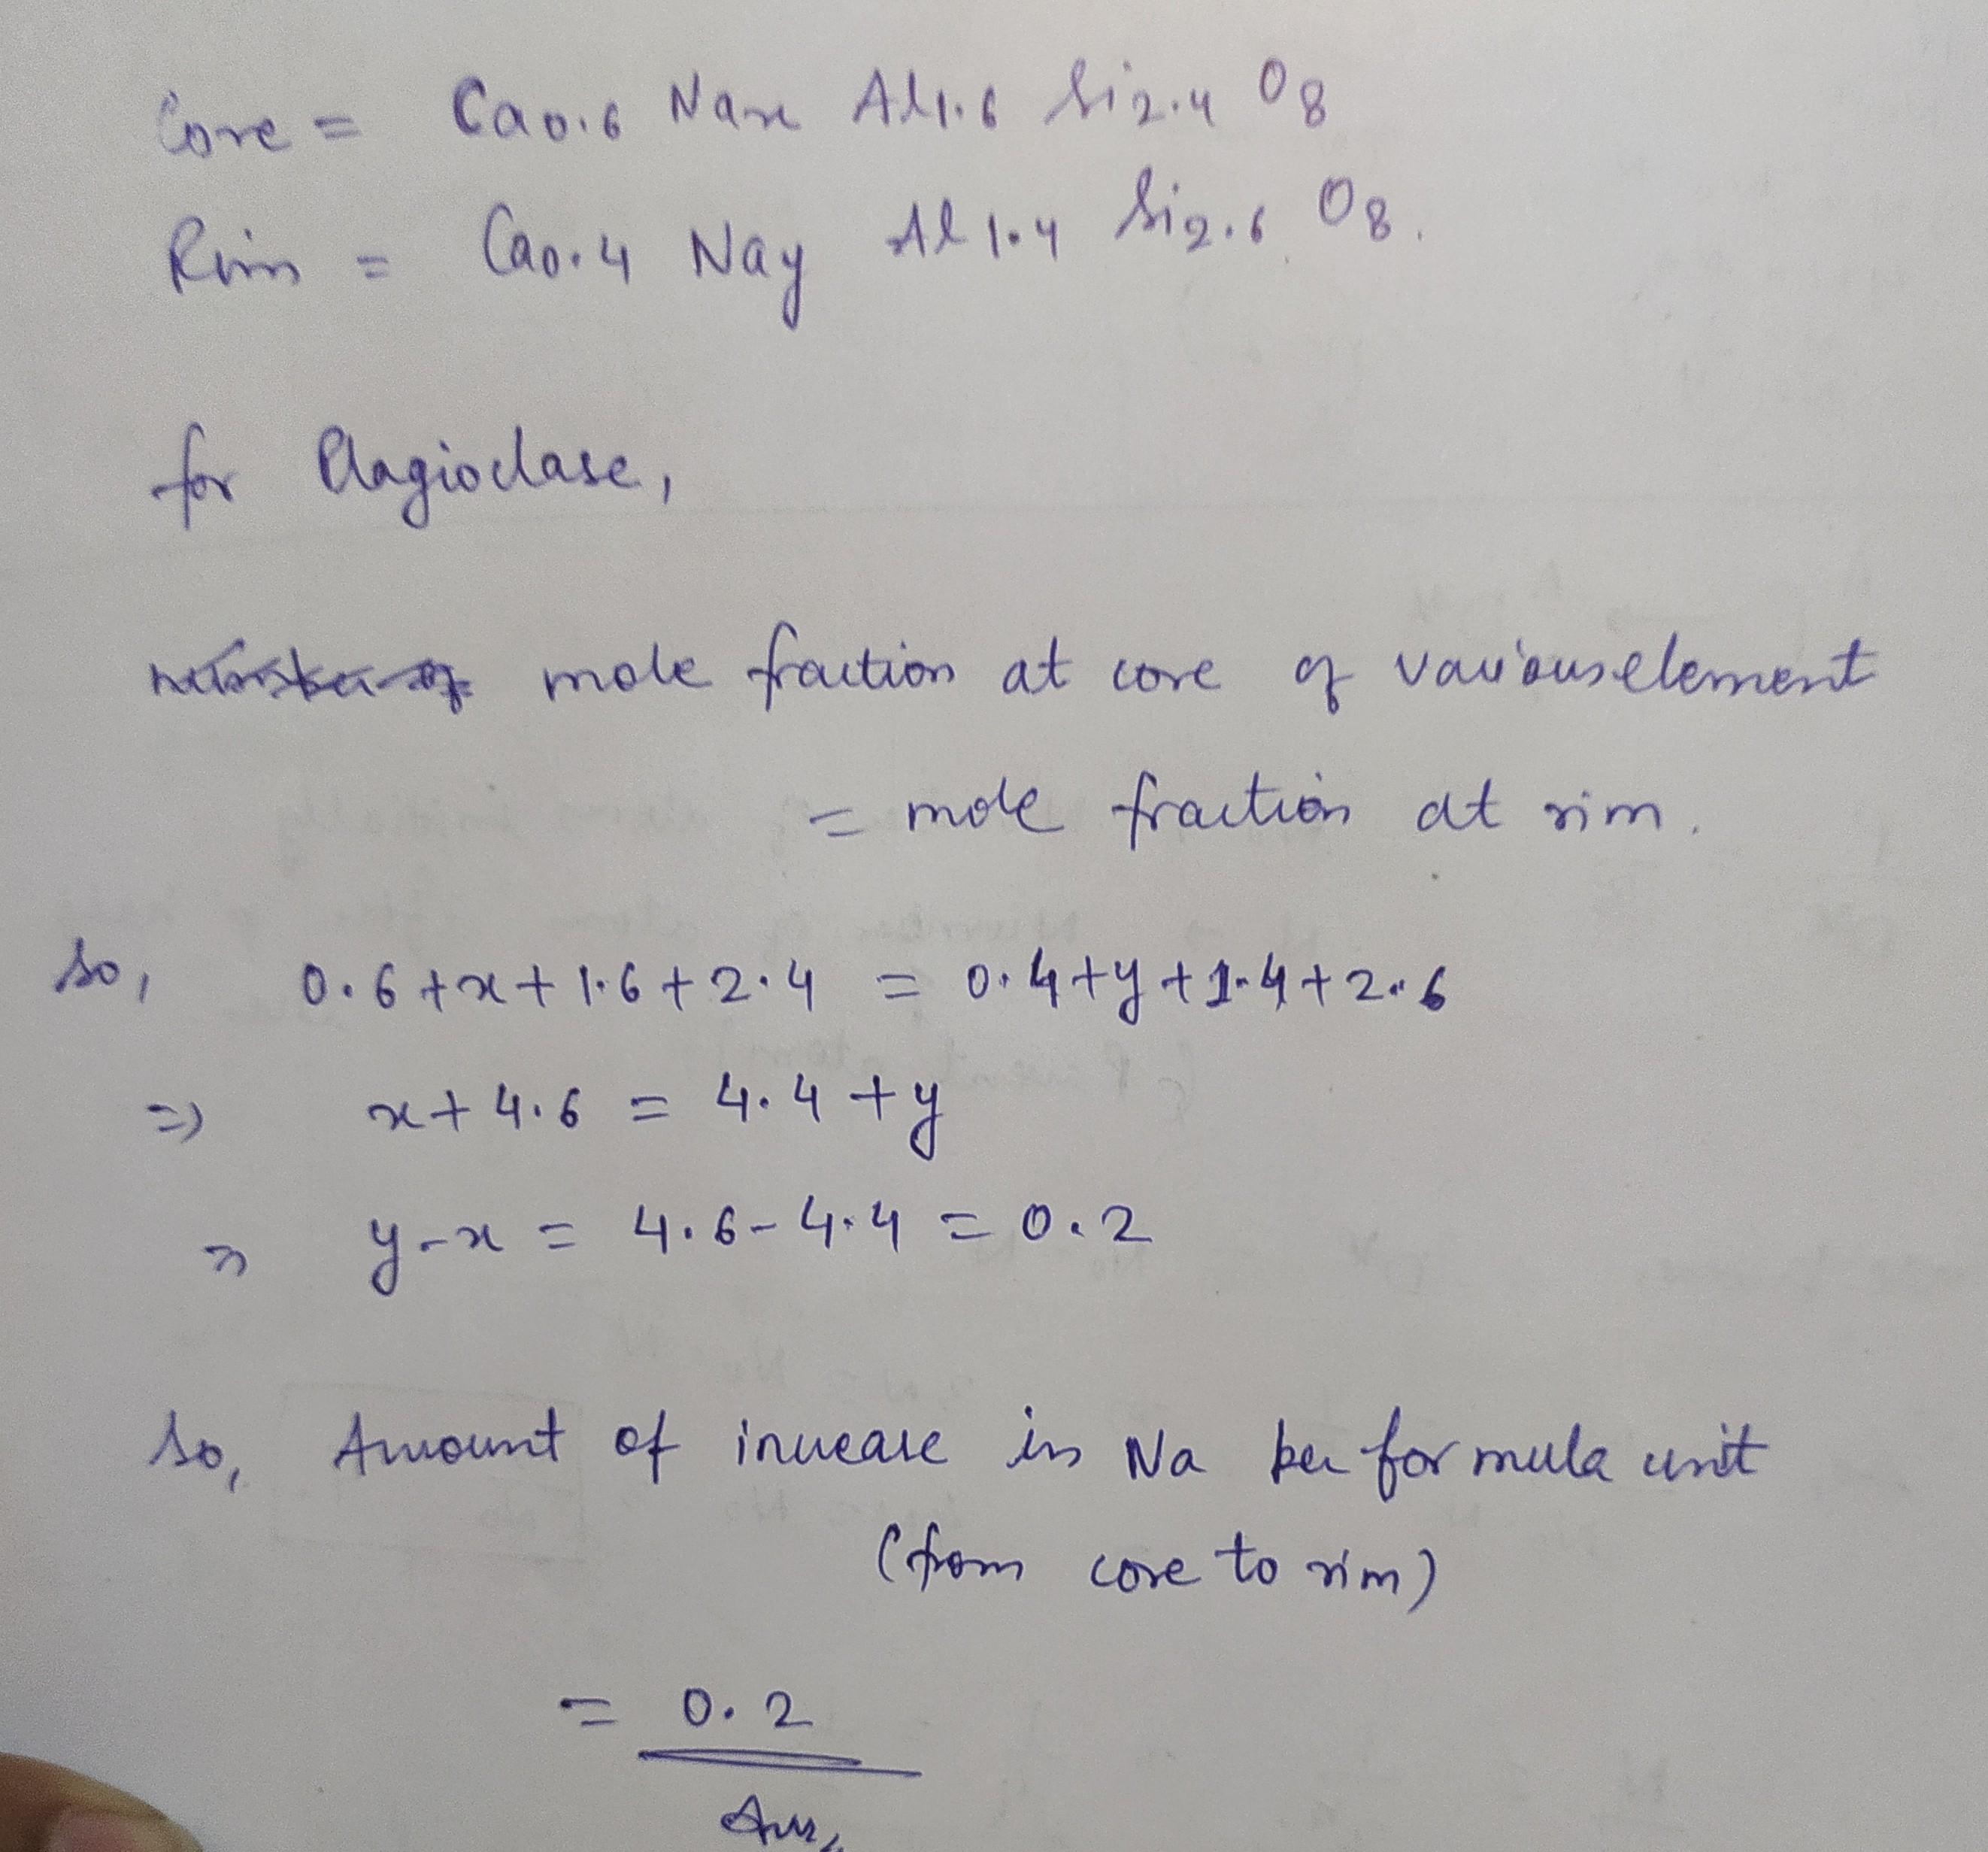 Core = Ca0.6 Nax Al1.6 Si2.4 O8
Rim = Ca0.4 Nay Al1.4 Si2.6 O8.
for Plagioclase,
mole fraction at core of various element
= mole fraction at rim.
So, 0.6+x+1.6+2.4 = 0.4+y+1.4+2.6
=> x+4.6 = 4.4+y
=> y-x = 4.6-4.4 = 0.2
So, Amount of increase in Na per formula unit
(from core to rim)
= 0.2
Ans,